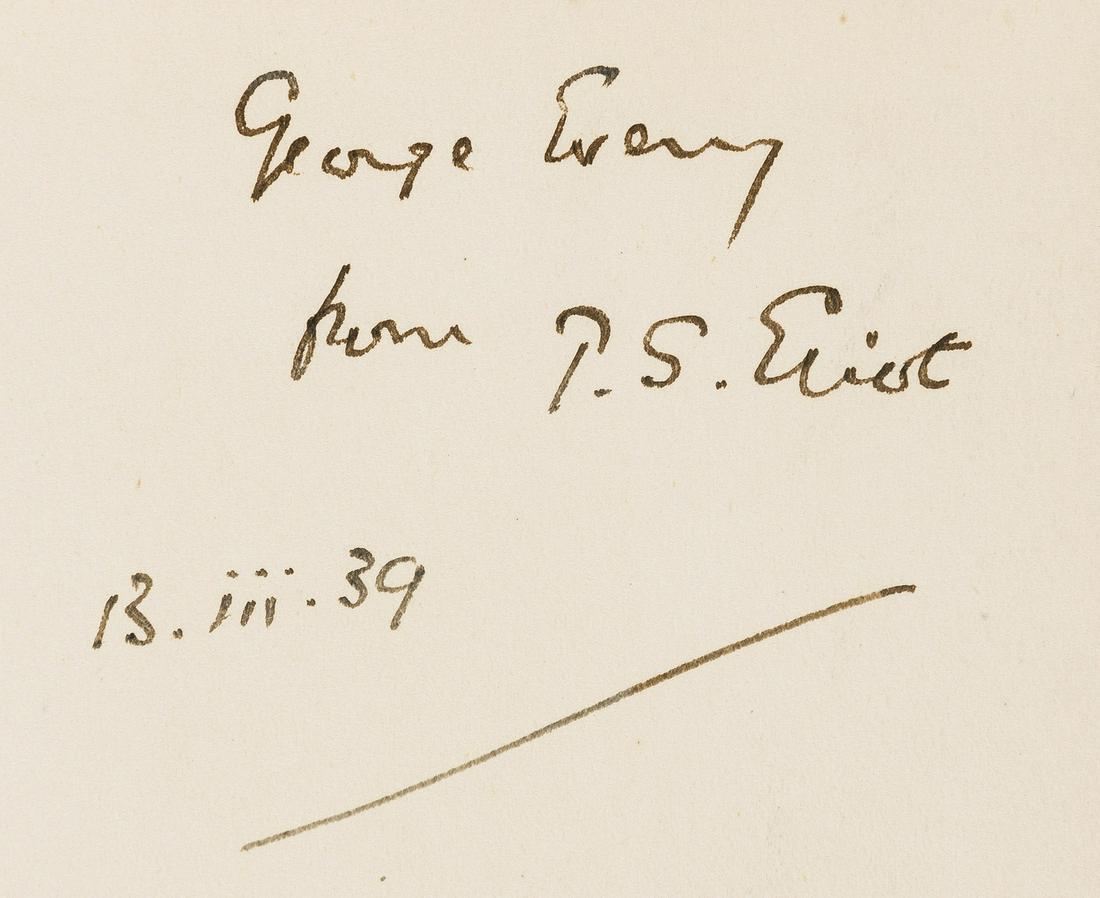 George Every
from T. S. Eliot
13. iii. 39